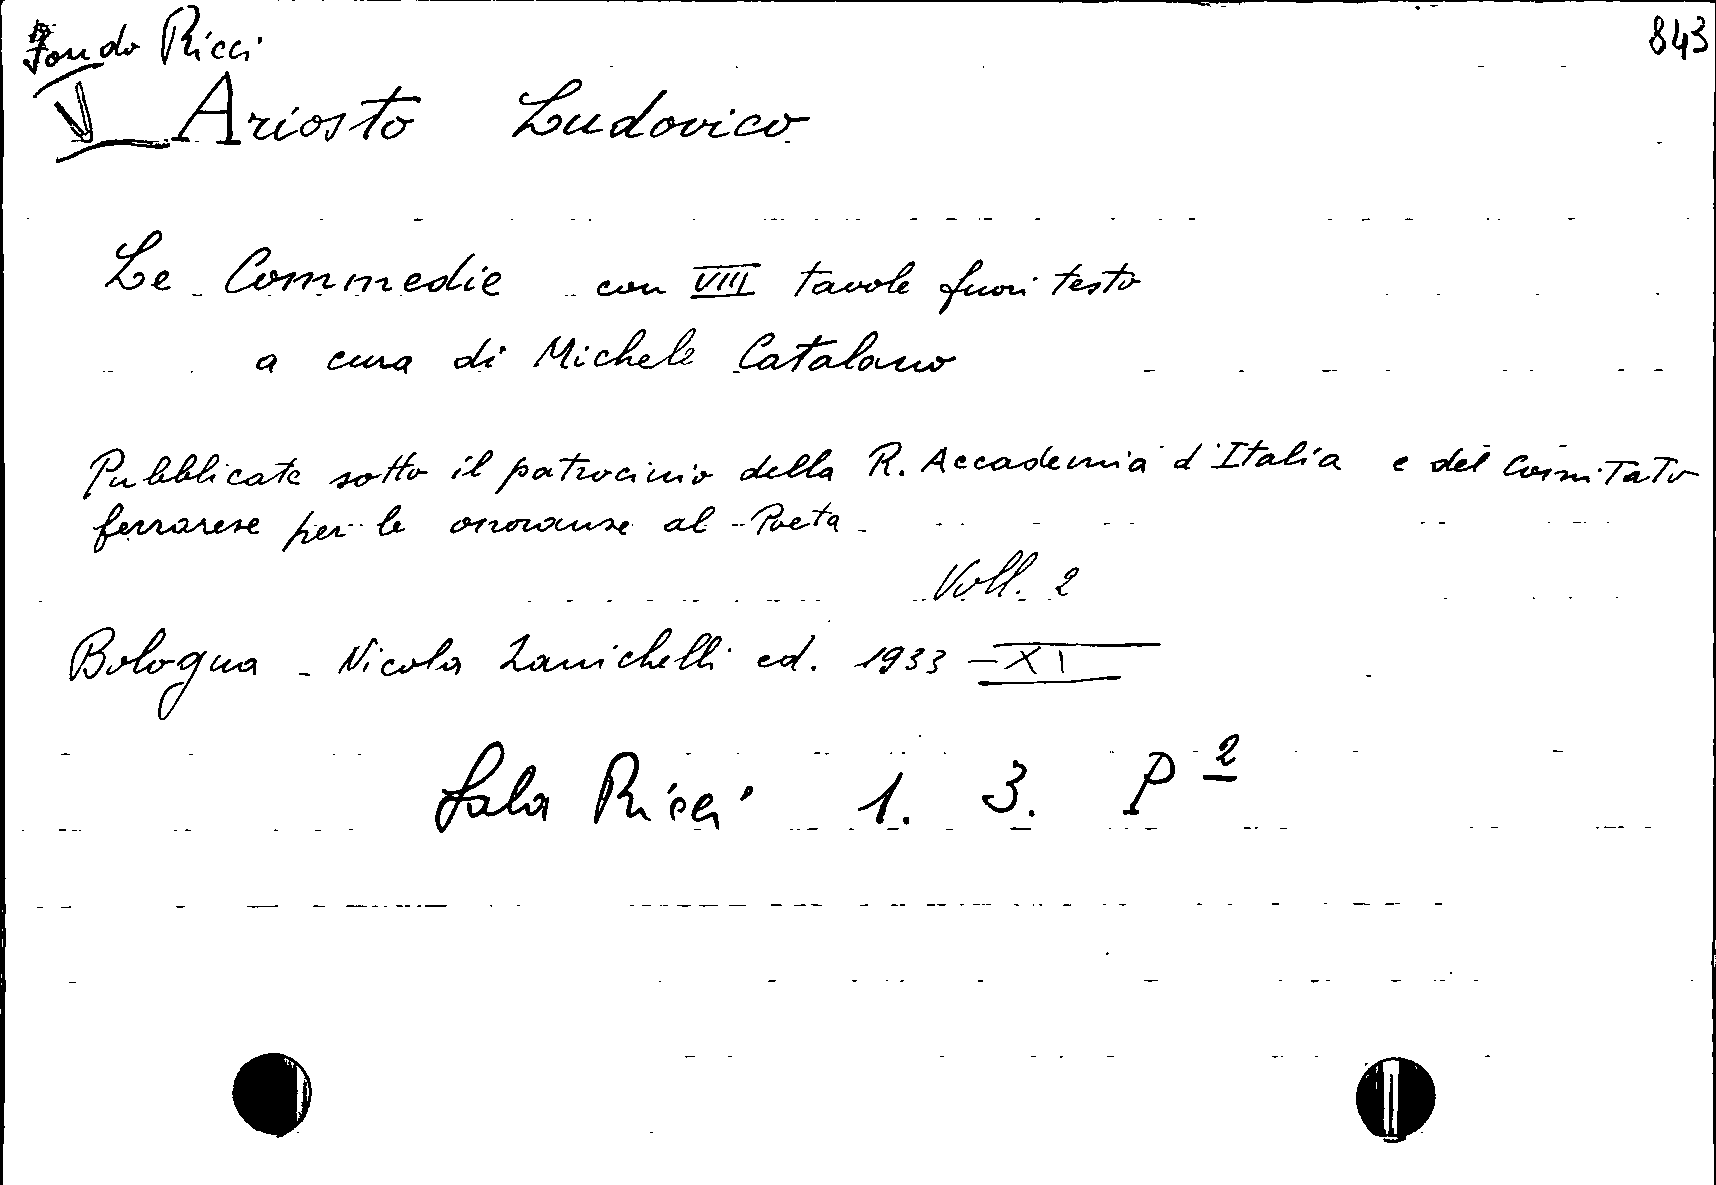 Fondo Ricci 843
V Ariosto Ludovico
Le Commedie con VIII tavole fuori testo
a cura di Michele Catalano
Pubblicate sotto il patrocinio della R. Accademia d'Italia e del Comitato
ferrarese per le onoranze al Poeta
Voll. 2
Bologna - Nicola Zanichelli ed. 1933 - XI
Sala Ricci 1. 3. P 2